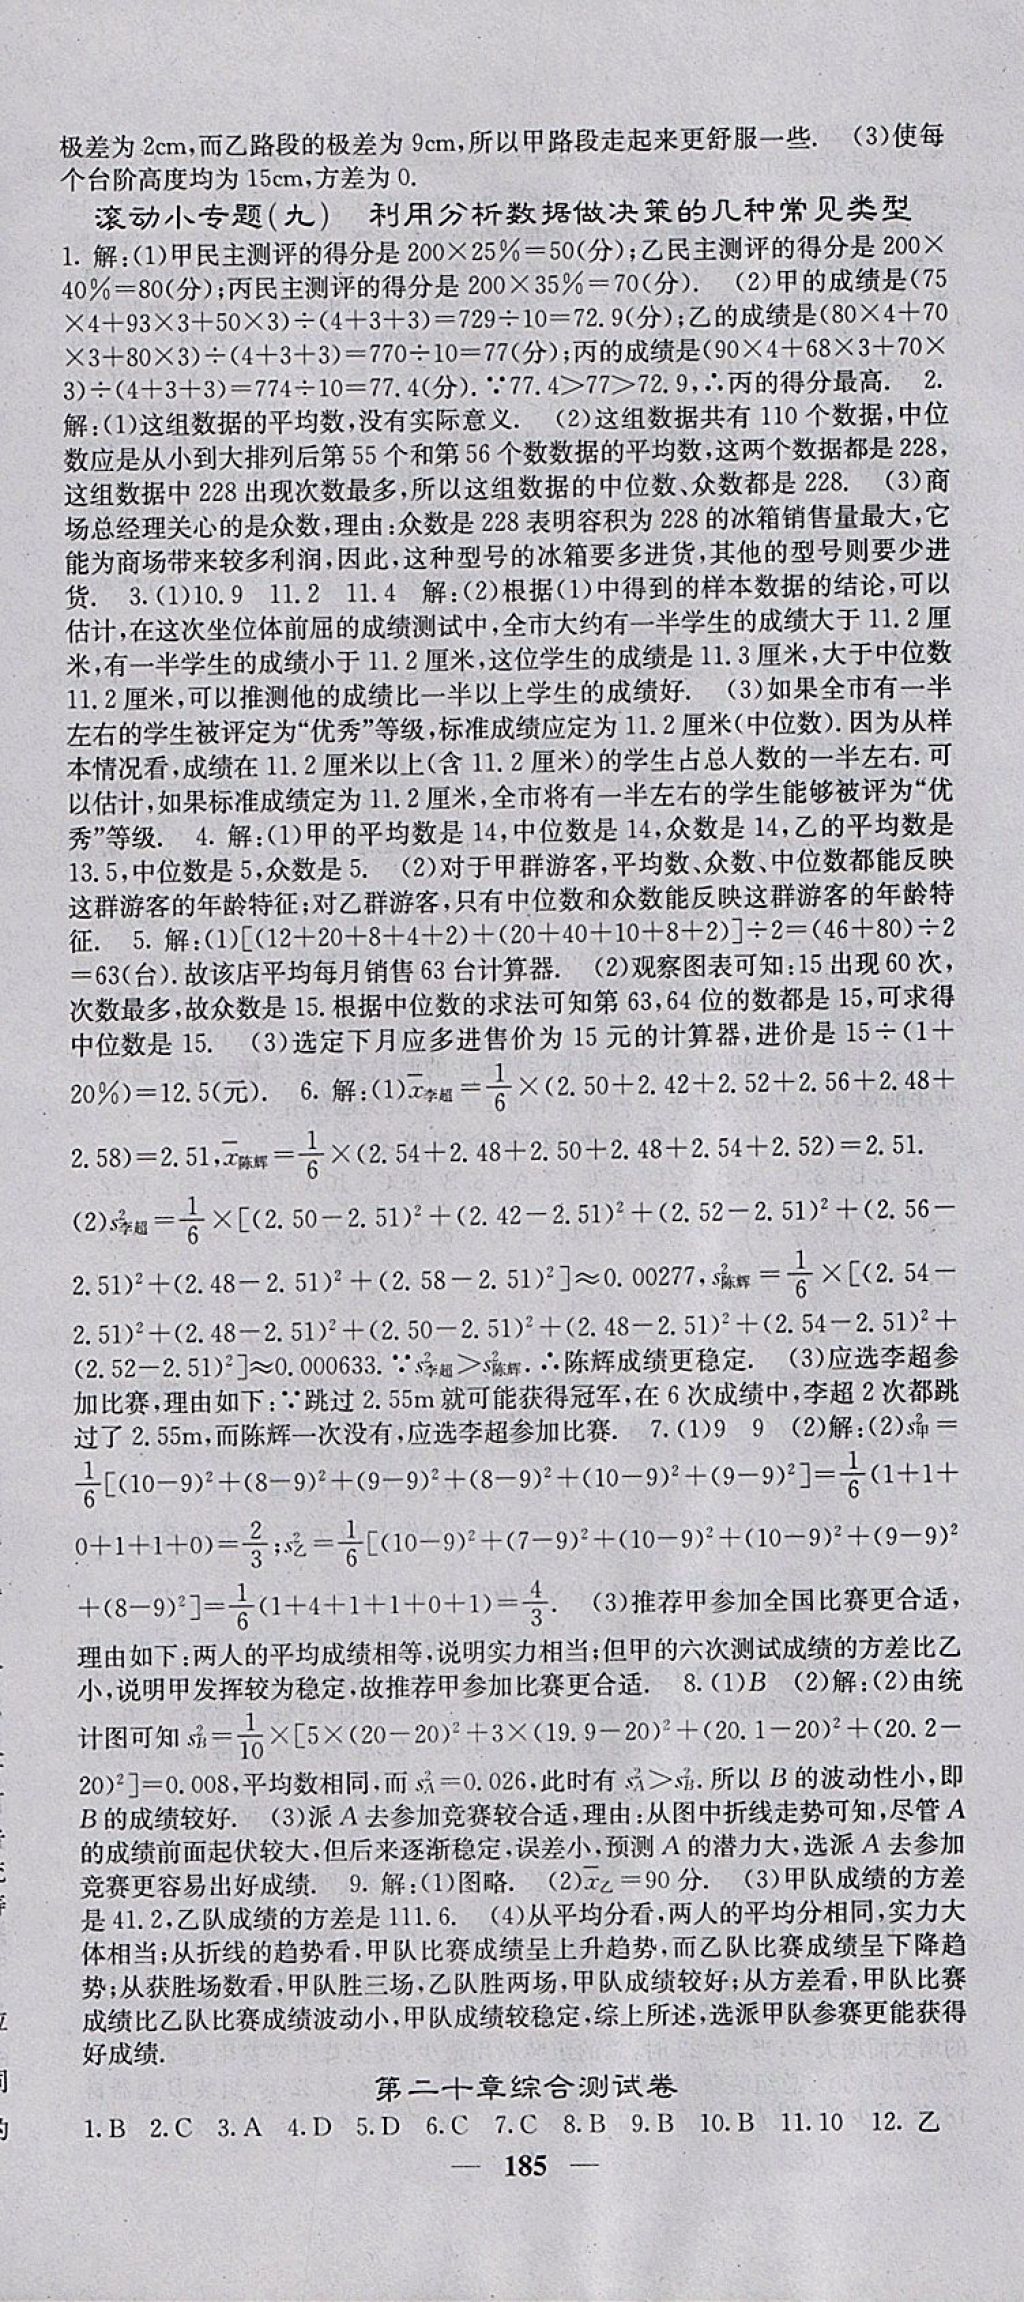 极差为 2cm,而乙路段的极差为 9cm,所以甲路段走起来更舒服一些. (3)使每
个台阶高度均为 15cm,方差为 0.
滚动小专题(九) 利用分析数据做决策的几种常见类型
1. 解:(1)甲民主测评的得分是 200×25%=50(分);乙民主测评的得分是 200×
40%=80(分);丙民主测评的得分是 200×35%=70(分). (2)甲的成绩是(75
×4+93×3+50×3)÷(4+3+3)=729÷10=72.9(分);乙的成绩是(80×4+70
×3+80×3)÷(4+3+3)=770÷10=77(分);丙的成绩是(90×4+68×3+70×
3)÷(4+3+3)=774÷10=77.4(分).∵77.4>77>72.9,∴丙的得分最高. 2.
解:(1)这组数据的平均数,没有实际意义. (2)这组数据共有 110 个数据,中位
数应是从小到大排列后第 55 个和第 56 个数数据的平均数,这两个数据都是 228,
这组数据中 228 出现次数最多,所以这组数据的中位数、众数都是 228. (3)商
场总经理关心的是众数,理由:众数是 228 表明容积为 228 的冰箱销售量最大,它
能为商场带来较多利润,因此,这种型号的冰箱要多进货,其他的型号则要少进
货. 3.(1)10.9 11.2 11.4 解:(2)根据(1)中得到的样本数据的结论,可以
估计,在这次坐位体前屈的成绩测试中,全市大约有一半学生的成绩大于 11.2 厘
米,有一半学生的成绩小于 11.2 厘米,这位学生的成绩是 11.3 厘米,大于中位数
11.2 厘米,可以推测他的成绩比一半以上学生的成绩好. (3)如果全市有一半
左右的学生被评定为“优秀”等级,标准成绩应定为 11.2 厘米(中位数).因为从样
本情况看,成绩在 11.2 厘米以上(含 11.2 厘米)的学生占总人数的一半左右.可
以估计,如果标准成绩定为 11.2 厘米,全市将有一半左右的学生能够被评为“优
秀”等级. 4. 解:(1)甲的平均数是 14,中位数是 14,众数是 14,乙的平均数是
13.5,中位数是 5,众数是 5. (2)对于甲群游客,平均数、众数、中位数都能反映
这群游客的年龄特征;对乙群游客,只有中位数和众数能反映这群游客的年龄特
征. 5. 解:(1)[(12+20+8+4+2)+(20+40+10+8+2)]÷2=(46+80)÷2
=63(台).故该店平均每月销售 63 台计算器. (2)观察图表可知:15 出现 60 次,
次数最多,故众数是 15.根据中位数的求法可知第 63,64 位的数都是 15,可求得
中位数是 15. (3)选定下月应多进售价为 15 元的计算器,进价是 15÷(1+
20%)=12.5(元). 6. 解:(1)x̄李超=1/6×(2.50+2.42+2.52+2.56+2.48+
2.58)=2.51,x̄陈辉=1/6×(2.54+2.48+2.50+2.48+2.54+2.52)=2.51.
(2)s²李超=1/6×[(2.50-2.51)²+(2.42-2.51)²+(2.52-2.51)²+(2.56-
2.51)²+(2.48-2.51)²+(2.58-2.51)²]≈0.00277,s²陈辉=1/6×[(2.54-
2.51)²+(2.48-2.51)²+(2.50-2.51)²+(2.48-2.51)²+(2.54-2.51)²+
(2.52-2.51)²]≈0.000633.∵s²李超>s²陈辉.∴陈辉成绩更稳定. (3)应选李超参
加比赛,理由如下:∵跳过 2.55m 就可能获得冠军,在 6 次成绩中,李超 2 次都跳
过了 2.55m,而陈辉一次没有,应选李超参加比赛. 7.(1)9 9 (2)解:(2)s²甲=
1/6[(10-9)²+(8-9)²+(9-9)²+(8-9)²+(10-9)²+(9-9)²]=1/6(1+1+
0+1+1+0)=2/3;s²乙=1/6[(10-9)²+(7-9)²+(10-9)²+(10-9)²+(9-9)²
+(8-9)²]=1/6(1+4+1+1+0+1)=4/3. (3)推荐甲参加全国比赛更合适,
理由如下:两人的平均成绩相等,说明实力相当;但甲的六次测试成绩的方差比乙
小,说明甲发挥较为稳定,故推荐甲参加比赛更合适. 8.(1)B (2)解:(2)由统
计图可知 s²B=1/10×[5×(20-20)²+3×(19.9-20)²+(20.1-20)²+(20.2-
20)²]=0.008,平均数相同,而 s²A=0.026,此时有 s²A>s²B.所以 B 的波动性小,即
B 的成绩较好. (3)派 A 去参加竞赛较合适,理由:从图中折线走势可知,尽管 A
的成绩前面起伏较大,但后来逐渐稳定,误差小,预测 A 的潜力大,选派 A 去参加
竞赛更容易出好成绩. 9. 解:(1)图略. (2)x̄乙=90 分. (3)甲队成绩的方差
是 41.2,乙队成绩的方差是 111.6. (4)从平均分看,两人的平均分相同,实力大
体相当;从折线的趋势看,甲队比赛成绩呈上升趋势,而乙队比赛成绩呈下降趋
势;从获胜场数看,甲队胜三场,乙队胜两场,甲队成绩较好;从方差看,甲队比赛
成绩比乙队比赛成绩波动小,甲队成绩较稳定,综上所述,选派甲队参赛更能获得
好成绩.
第二十章综合测试卷
1.B 2.C 3.A 4.D 5.D 6.C 7.C 8.B 9.B 10.B 11.10 12.乙
— 185 —